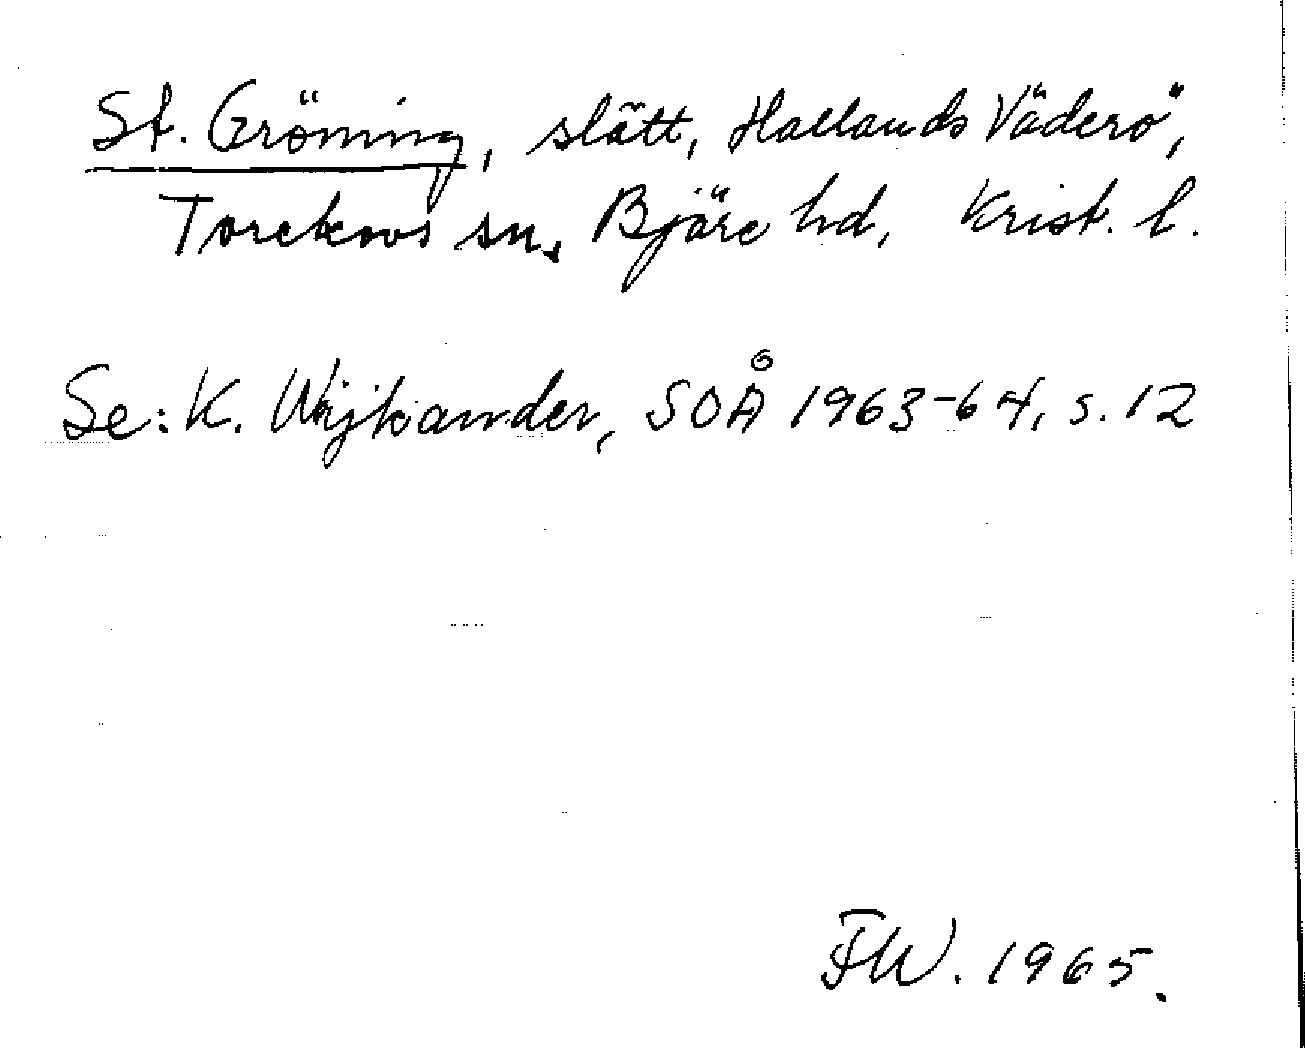 St. Gröning, slätt, Hallands Väderö,
Torekovs sn, Bjäre hd, Krist. l.
Se: K. Wijkander, SOÅ 1963-64, s. 12
FW. 1965.